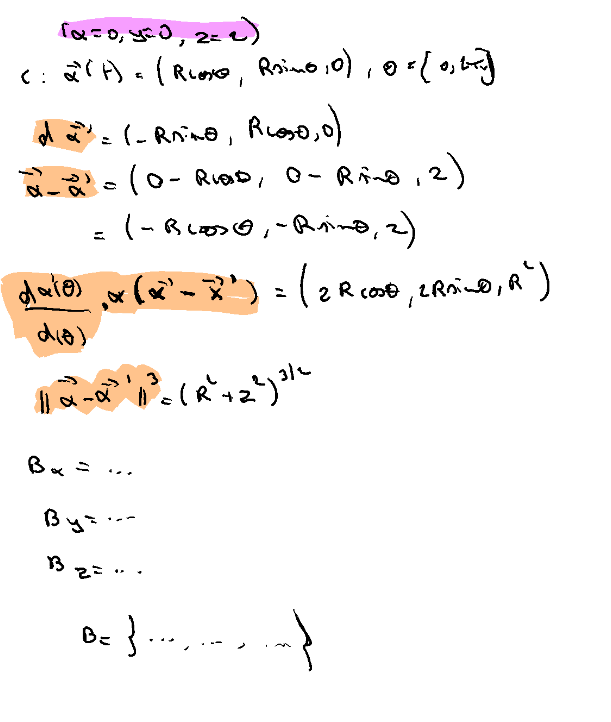 (x=0, y=0, z=z)
C: x⃗'(t) = (Rcosθ, Rsinθ, 0), θ ∈ [0, 2π]
d x⃗' = (-Rsinθ, Rcosθ, 0)
x⃗ - x⃗' = (0 - Rcosθ, 0 - Rsinθ, z)
= (-Rcosθ, -Rsinθ, z)
dx'(θ)/d(θ) × (x⃗ - x⃗') = (zRcosθ, zRsinθ, R²)
||x⃗ - x⃗'||³ = (R² + z²)^3/2
Bx = ...
By = ...
Bz = ...
B = } ..., ..., ... }